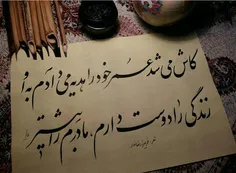 کاش می شد عمر خود را هدیه می دادم به او
زندگی را دوست دارم، مادرم را بیشتر